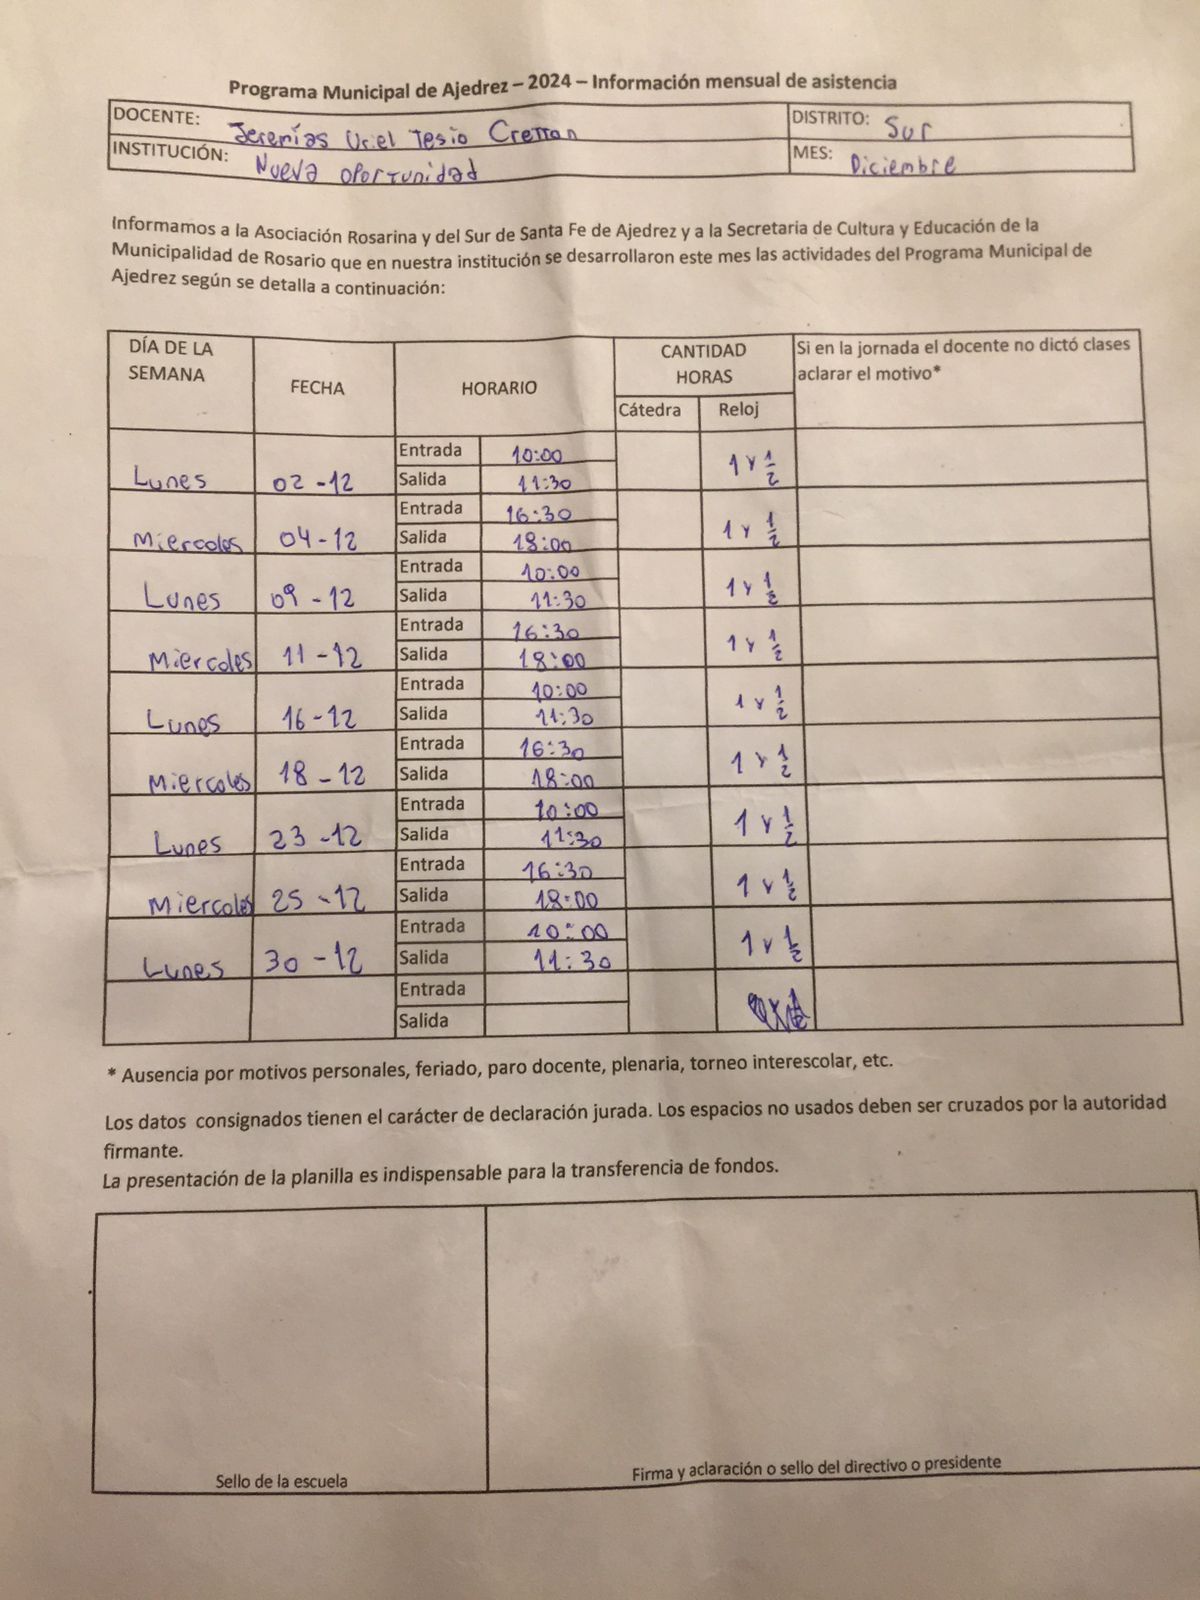 Programa Municipal de Ajedrez – 2024 – Información mensual de asistencia
DOCENTE: Jeremías Uriel Tesio Crettan
DISTRITO: Sur
INSTITUCIÓN: Nueva oportunidad
MES: Diciembre
Informamos a la Asociación Rosarina y del Sur de Santa Fe de Ajedrez y a la Secretaria de Cultura y Educación de la
Municipalidad de Rosario que en nuestra institución se desarrollaron este mes las actividades del Programa Municipal de
Ajedrez según se detalla a continuación:
DÍA DE LA SEMANA FECHA HORARIO CANTIDAD HORAS Si en la jornada el docente no dictó clases aclarar el motivo*
Cátedra Reloj
Lunes 02-12 Entrada 10:00 1 y 1/2
Salida 11:30
Miercoles 04-12 Entrada 16:30 1 y 1/2
Salida 18:00
Lunes 09-12 Entrada 10:00 1 y 1/2
Salida 11:30
Miercoles 11-12 Entrada 16:30 1 y 1/2
Salida 18:00
Lunes 16-12 Entrada 10:00 1 y 1/2
Salida 11:30
Miercoles 18-12 Entrada 16:30 1 y 1/2
Salida 18:00
Lunes 23-12 Entrada 10:00 1 y 1/2
Salida 11:30
Miercoles 25-12 Entrada 16:30 1 y 1/2
Salida 18:00
Lunes 30-12 Entrada 10:00 1 y 1/2
Salida 11:30
Entrada
Salida
* Ausencia por motivos personales, feriado, paro docente, plenaria, torneo interescolar, etc.
Los datos consignados tienen el carácter de declaración jurada. Los espacios no usados deben ser cruzados por la autoridad
firmante.
La presentación de la planilla es indispensable para la transferencia de fondos.
Sello de la escuela
Firma y aclaración o sello del directivo o presidente